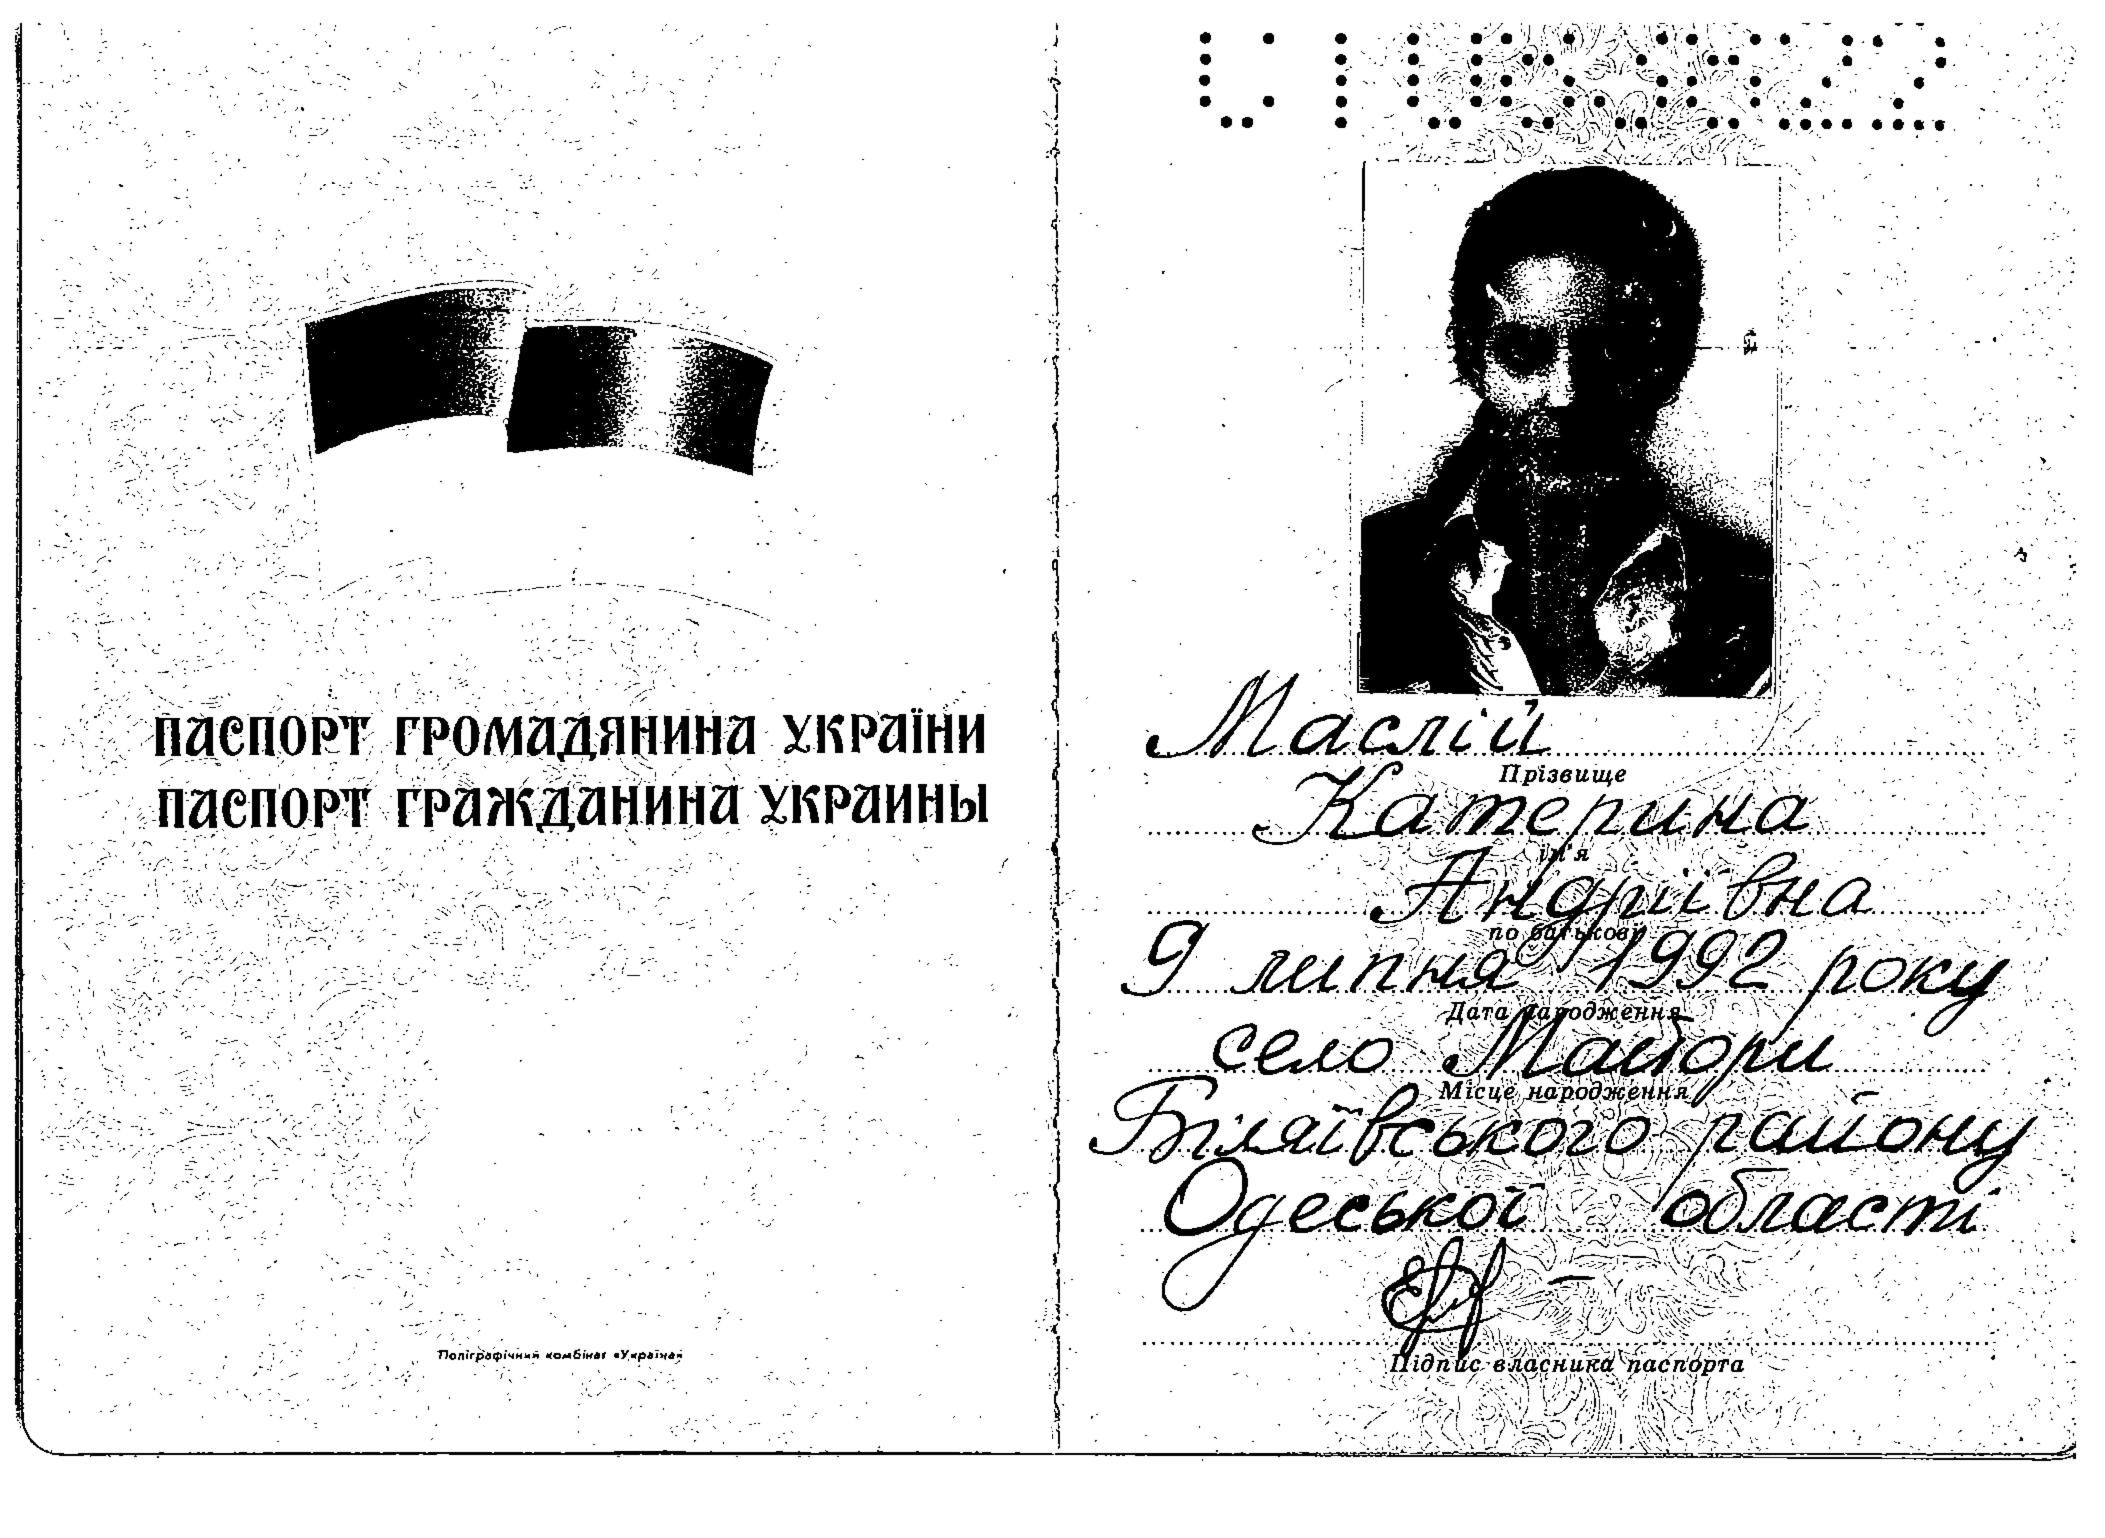 ПАСПОРТ ГРОМАДЯНИНА УКРАЇНИ
ПАСПОРТ ГРАЖДАНИНА УКРАИНЫ
Поліграфічний комбінат «Україна»
Маслій
Прізвище
Катерина
ім'я
Андріївна
по батькові
9 липня 1992 року
Дата народження
село Майори
Місце народження
Біляївського району
Одеської області
Підпис власника паспорта